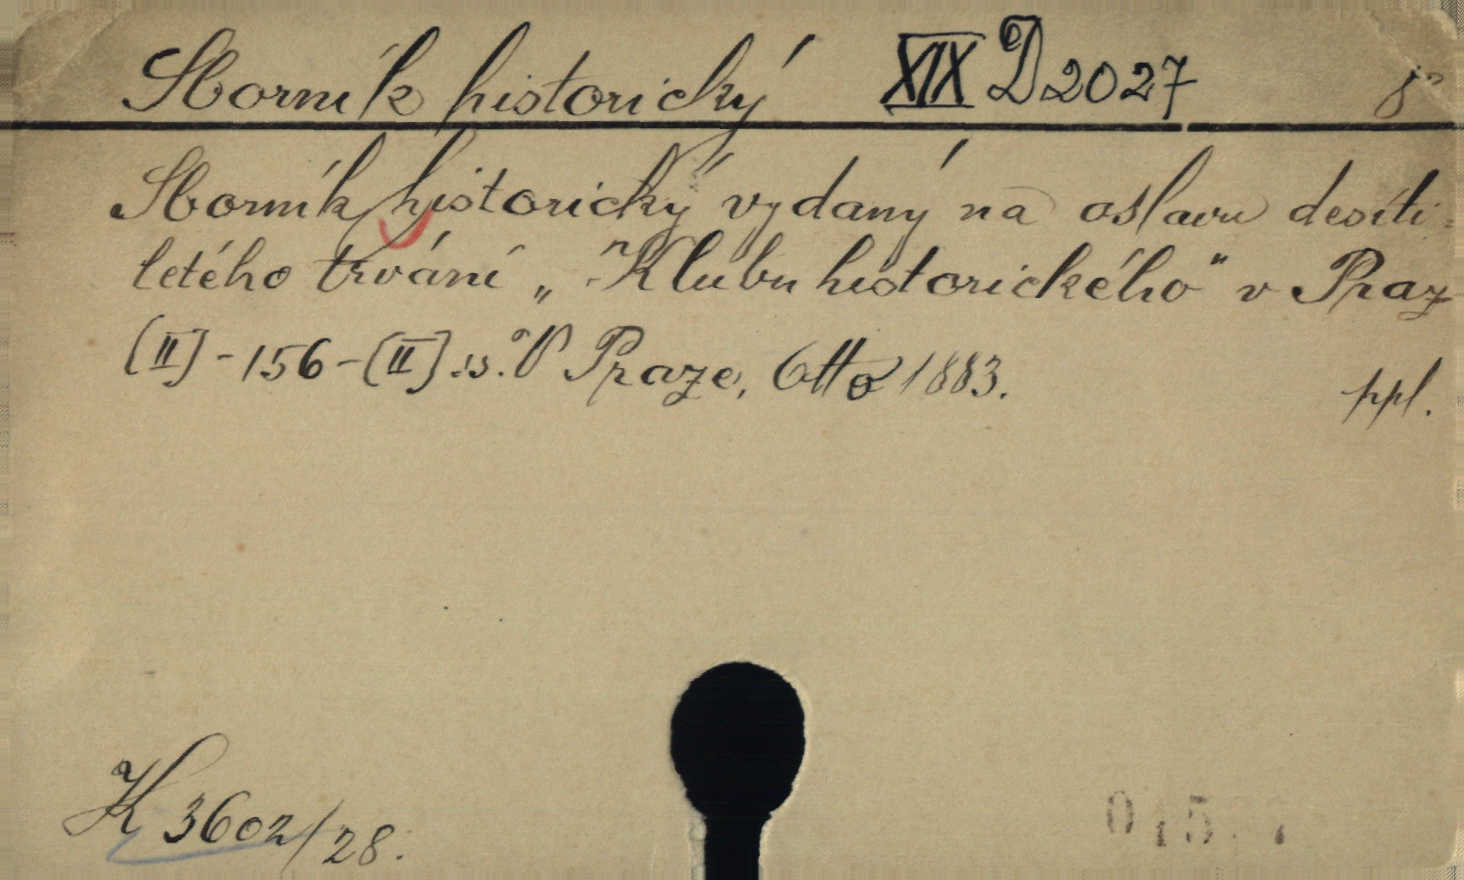 Sborník historický XIX D 2027 8°
Sborník historický vydaný na oslavu desíti-
letého trvání „Klubu historického" v Praz
(II)-156-(II) s. V Praze, Otto 1883.
ppl.
K 3602/28.